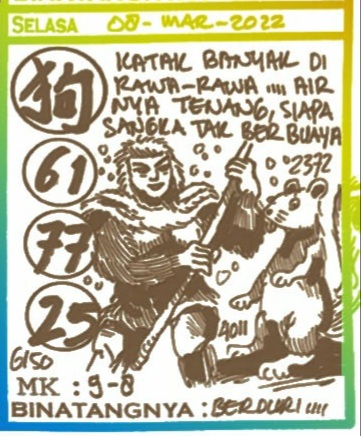 SELASA 08-MAR-2022
狗
KATAK BANYAK DI
RAWA-RAWA .... AIR
NYA TENANG, SIAPA
SANGKA TAK BERBUAYA
61
2372
77
25
A011
6150
MK : 9-8
BINATANGNYA : BERDURI ....